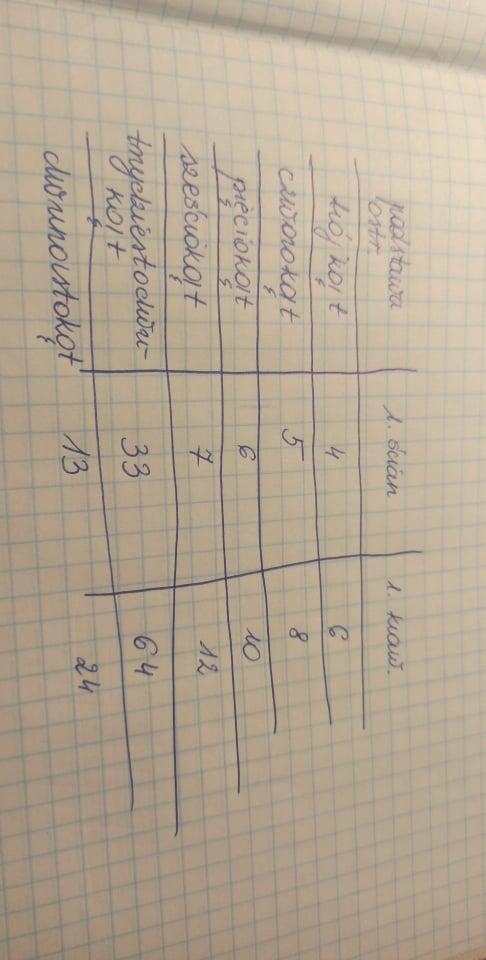 podstawa l. ścian l. kraw.
ostr.
trójkąt 4 6
czworokąt 5 8
pięciokąt 6 10
sześciokąt 7 12
trzydziestodwu- 33 64
kąt
dwunastokąt 13 24